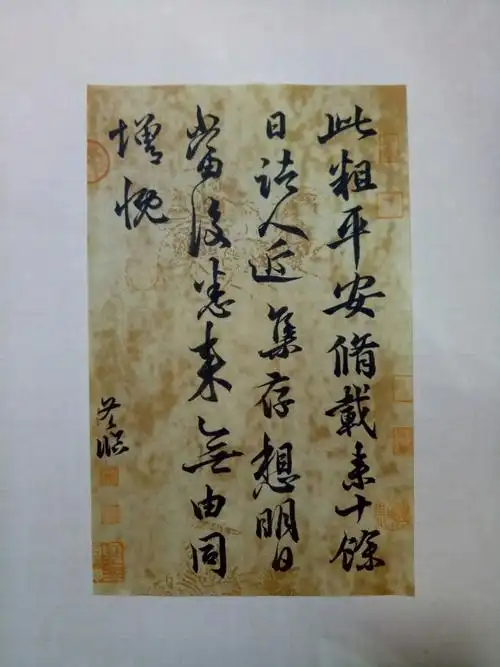 此粗平安脩載来十餘
日諸人近集存想明日
當復悉来無由同
增慨
臨